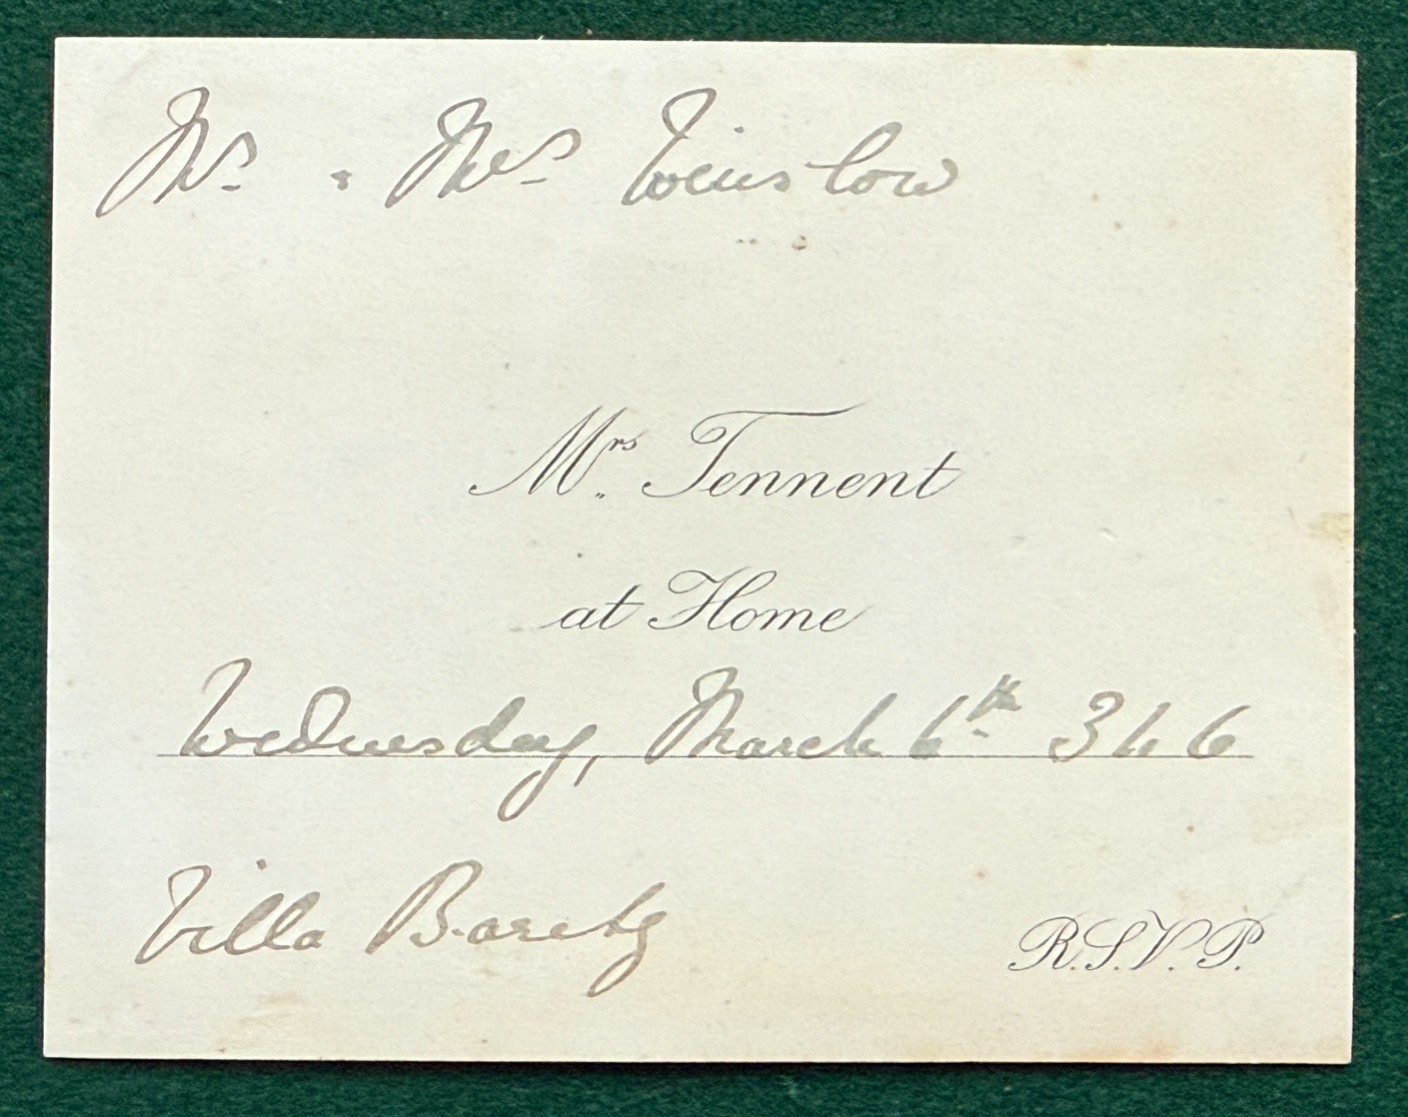 Mr. & Mrs. Winslow
Mrs. Tennent
at Home
Wednesday, March 6th 3 to 6
Villa
R.S.V.P.